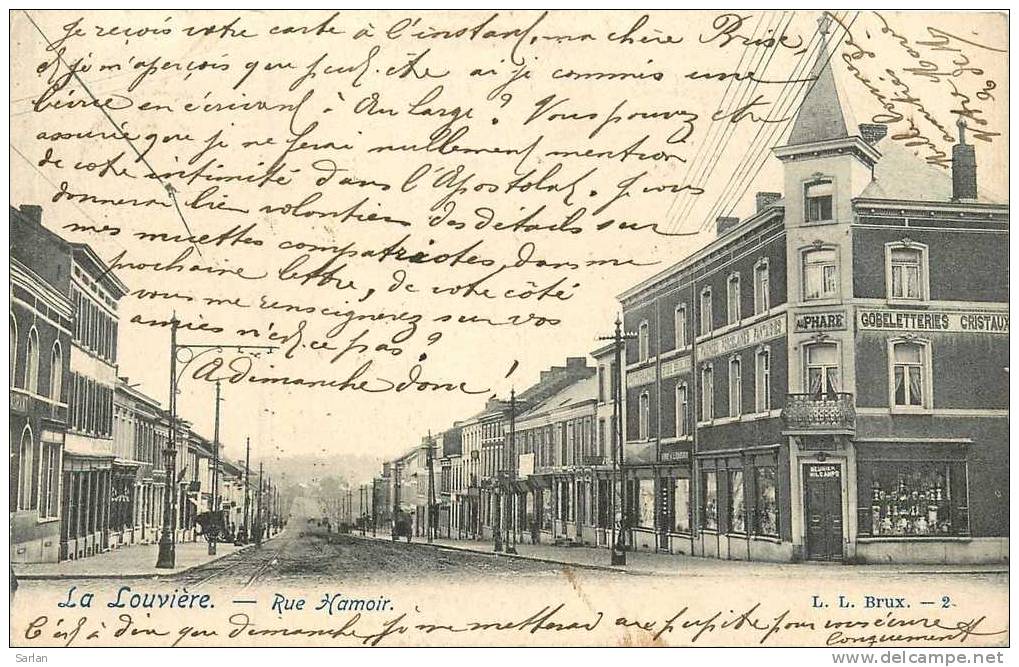 Je reçois votre carte à l'instant, ma chère Brise,
et je m'aperçois que peut-être ai-je commis une
bévue en écrivant à Au large? Vous pouvez être
assurée que je ne ferai nullement mention
de votre intimité dans l'Apostolat. Je vous
donnerai bien volontiers des détails sur
mes muettes compatriotes dans ma
prochaine lettre, de votre côté
vous me renseignerez sur vos
amies n'est-ce pas?
A dimanche donc!
Mille amitiés
Marie
AU PHARE
GOBELETTERIES CRISTAUX
MEUNIER
MILCAMPS
La Louvière. — Rue Hamoir.
L. L. Brux. — 2
C'est à dire que dimanche, je me mettrai au pupitre pour vous écrire
longuement
© Sartel
www.delcampe.net